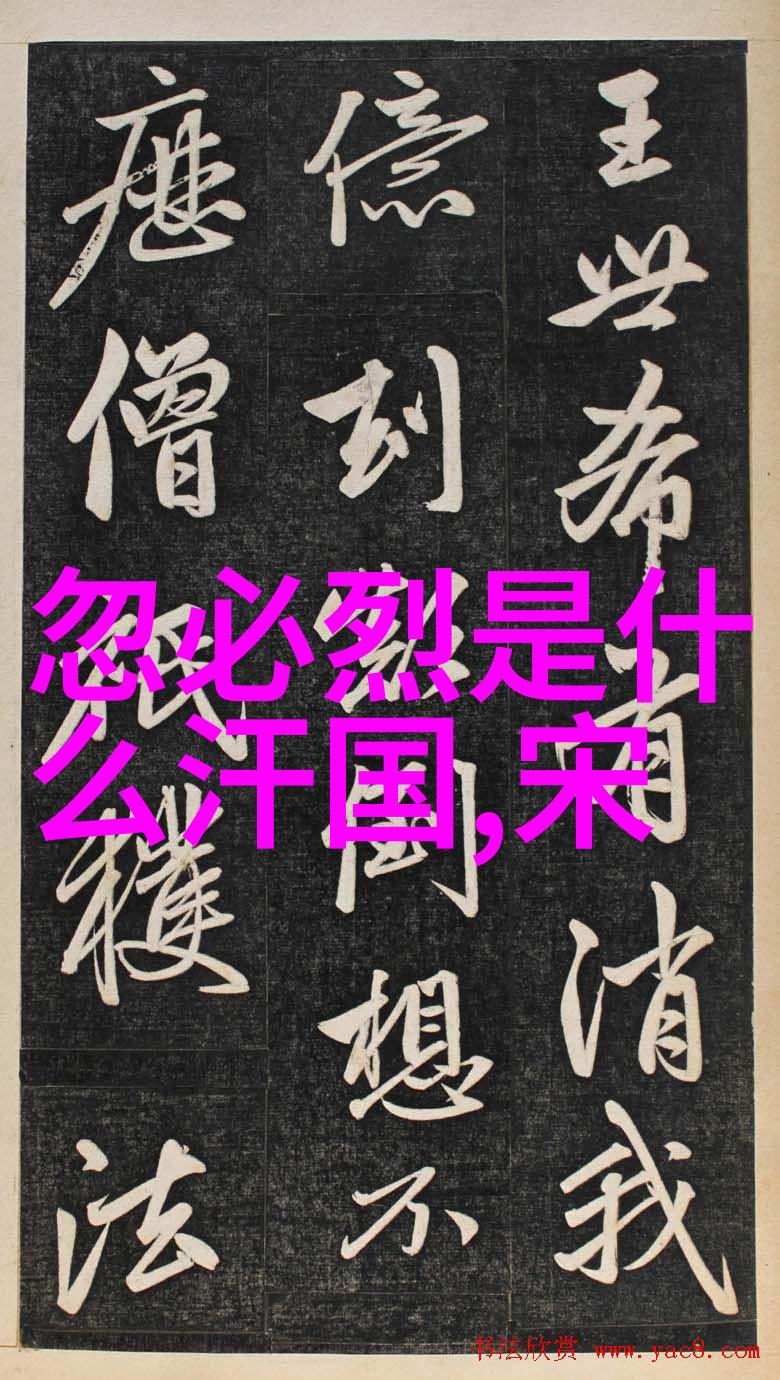 王世希有消我
億劫顛倒想不
歷僧祇穫法
忽必烈是什
么汗国,宋
书法欣赏 www.yac8.com